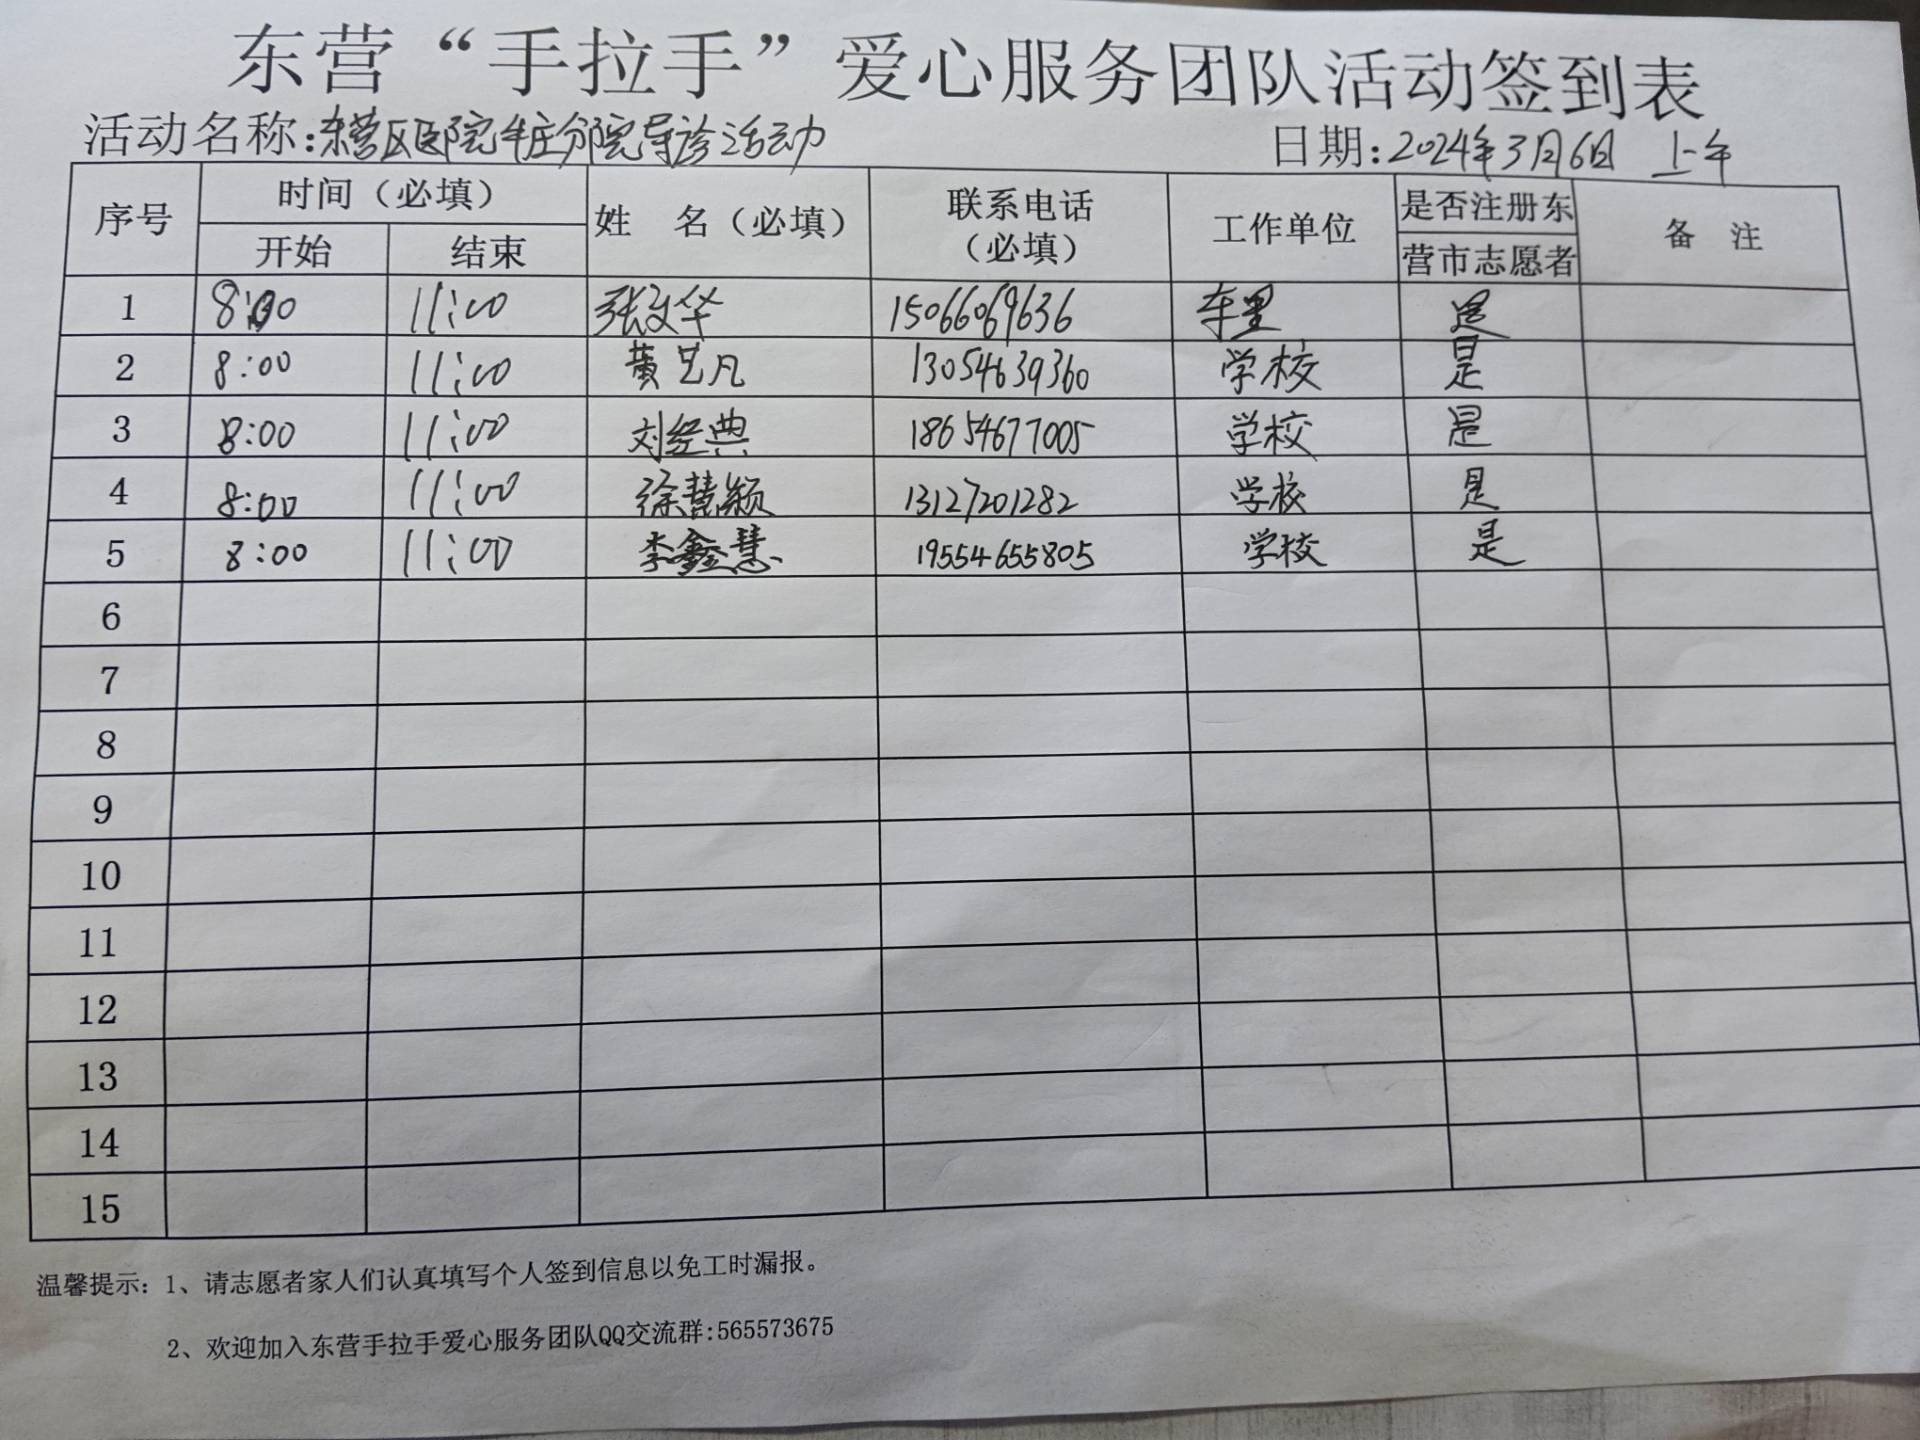 东营“手拉手”爱心服务团队活动签到表
活动名称:东营区医院牛庄分院导诊活动 日期:2024年3月6日 上午
序号 时间（必填） 姓 名（必填） 联系电话（必填） 工作单位 是否注册东营市志愿者 备 注
开始 结束
1 8:00 11:00 张文华 15066069636 是
2 8:00 11:00 黄艺凡 13054639360 学校 是
3 8:00 11:00 刘经典 18654677005 学校 是
4 8:00 11:00 徐慧颖 13127201282 学校 是
5 8:00 11:00 李鑫慧 19554655805 学校 是
6
7
8
9
10
11
12
13
14
15
温馨提示：1、请志愿者家人们认真填写个人签到信息以免工时漏报。
2、欢迎加入东营手拉手爱心服务团队QQ交流群:565573675